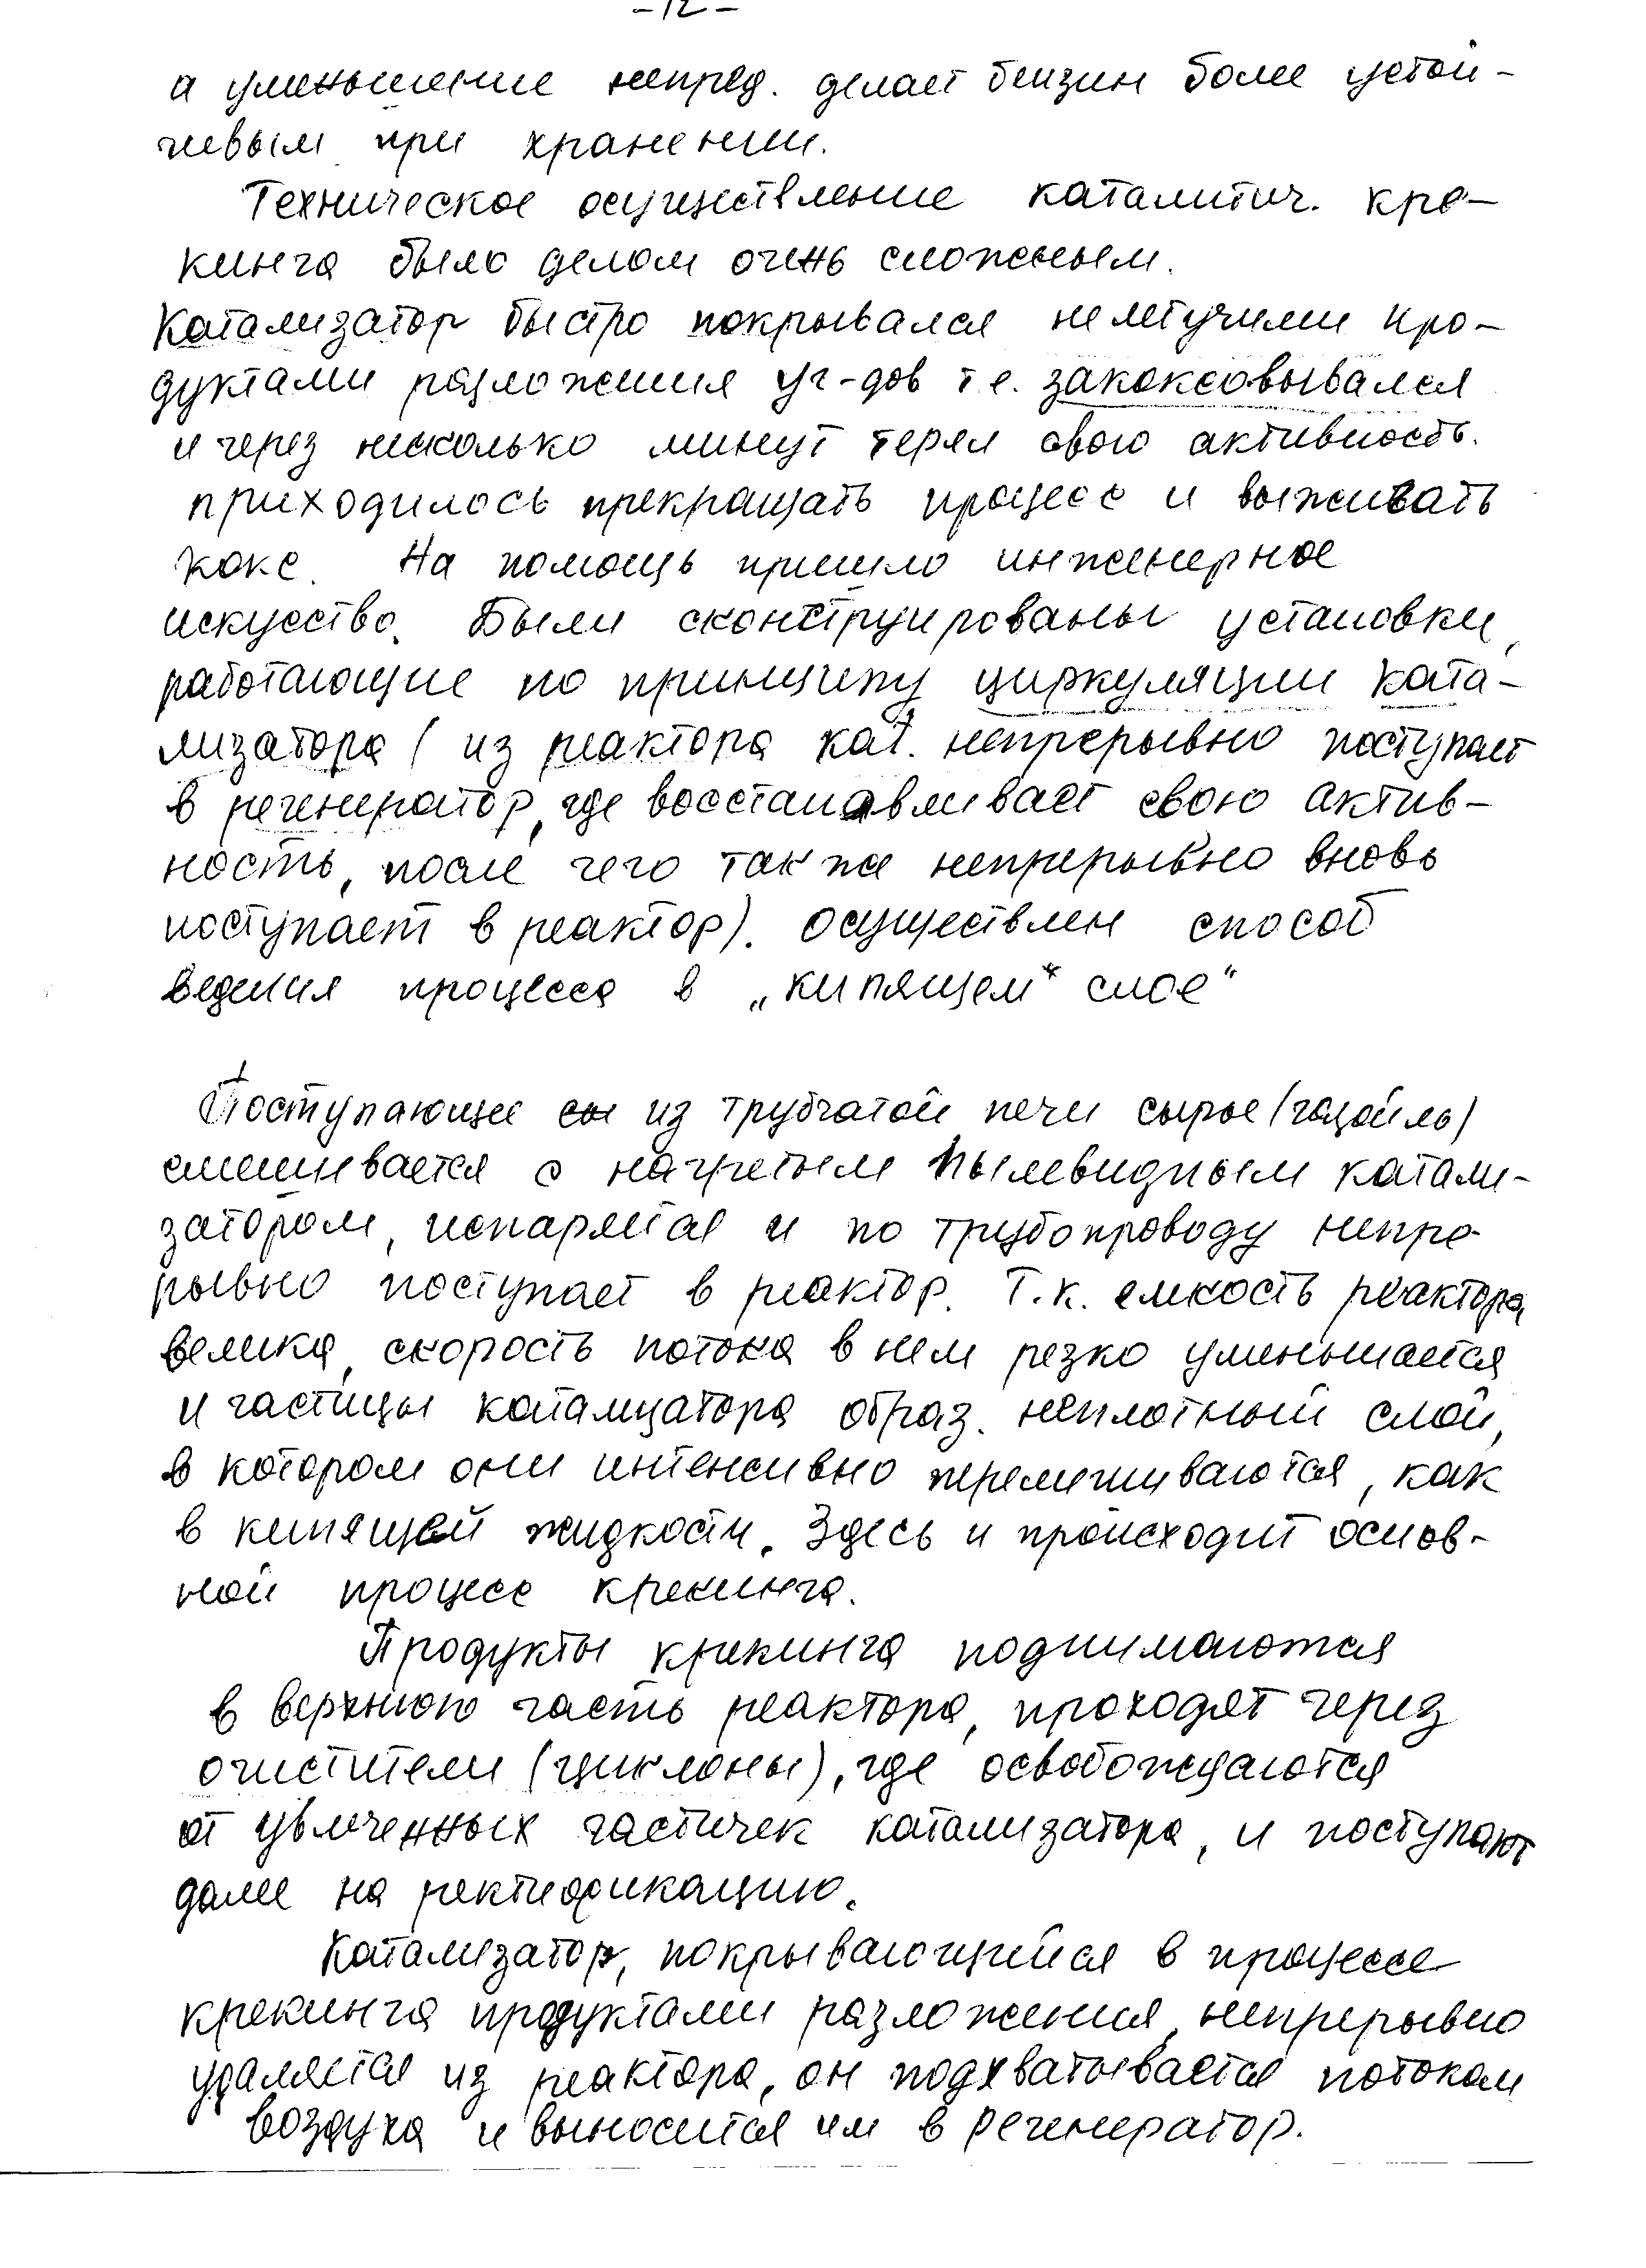 -12-
а уменьшение непред. делает бензин более устой-
чивым при хранении.
Техническое осуществление каталитич. кре-
кинга было делом очень сложным.
Катализатор быстро покрывался нелетучими про-
дуктами разложения уг-дов т.е. закоксовывался
и через несколько минут терял свою активность.
приходилось прекращать процесс и выживать
кокс. На помощь пришло инженерное
искусство. Были сконструированы установки,
работающие по принципу циркуляции ката-
лизатора (из реактора кат. непрерывно поступает
в регенератор, где восстанавливает свою актив-
ность, после чего так же непрерывно вновь
поступает в реактор). Осуществлен способ
ведения процесса в „кипящем* слое“
Поступающее сы из трубчатой печи сырье (газойль)
смешивается с нагретым пылевидным катали-
затором, испаряется и по трубопроводу непре-
рывно поступает в реактор. Т.к. емкость реактора
велика, скорость потока в нем резко уменьшается
и частицы катализатора образ. неплотный слой,
в котором они интенсивно перемешиваются, как
в кипящей жидкости. Здесь и происходит основ-
ной процесс крекинга.
Продукты крекинга поднимаются
в верхнюю часть реактора, проходят через
очистители (циклоны), где освобождаются
от увлеченных частичек катализатора, и поступают
далее на ректификацию.
Катализатор, покрывающийся в процессе
крекинга продуктами разложения, непрерывно
удаляется из реактора, он подхватывается потоком
воздуха и выносится им в регенератор.